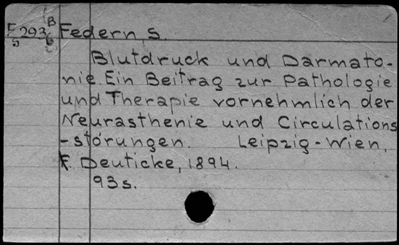 F 293 B Federn S.
5 6
Blutdruck und Darmato-
nie. Ein Beitrag zur Pathologie
und Therapie vornehmlich der
Neurasthenie und Circulations
-störungen. Leipzig-Wien,
F. Deuticke, 1894.
93s.